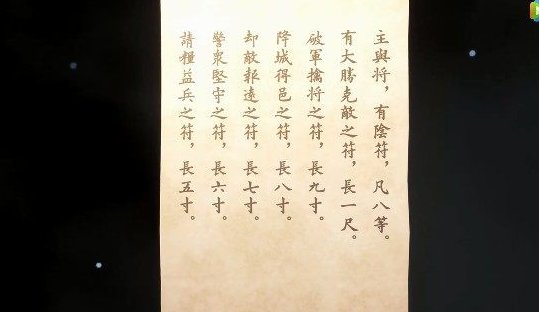 主與將，有陰符，凡八等。
有大勝克敵之符，長一尺。
破軍擒將之符，長九寸。
降城得邑之符，長八寸。
却敵報遠之符，長七寸。
警眾堅守之符，長六寸。
請糧益兵之符，長五寸。